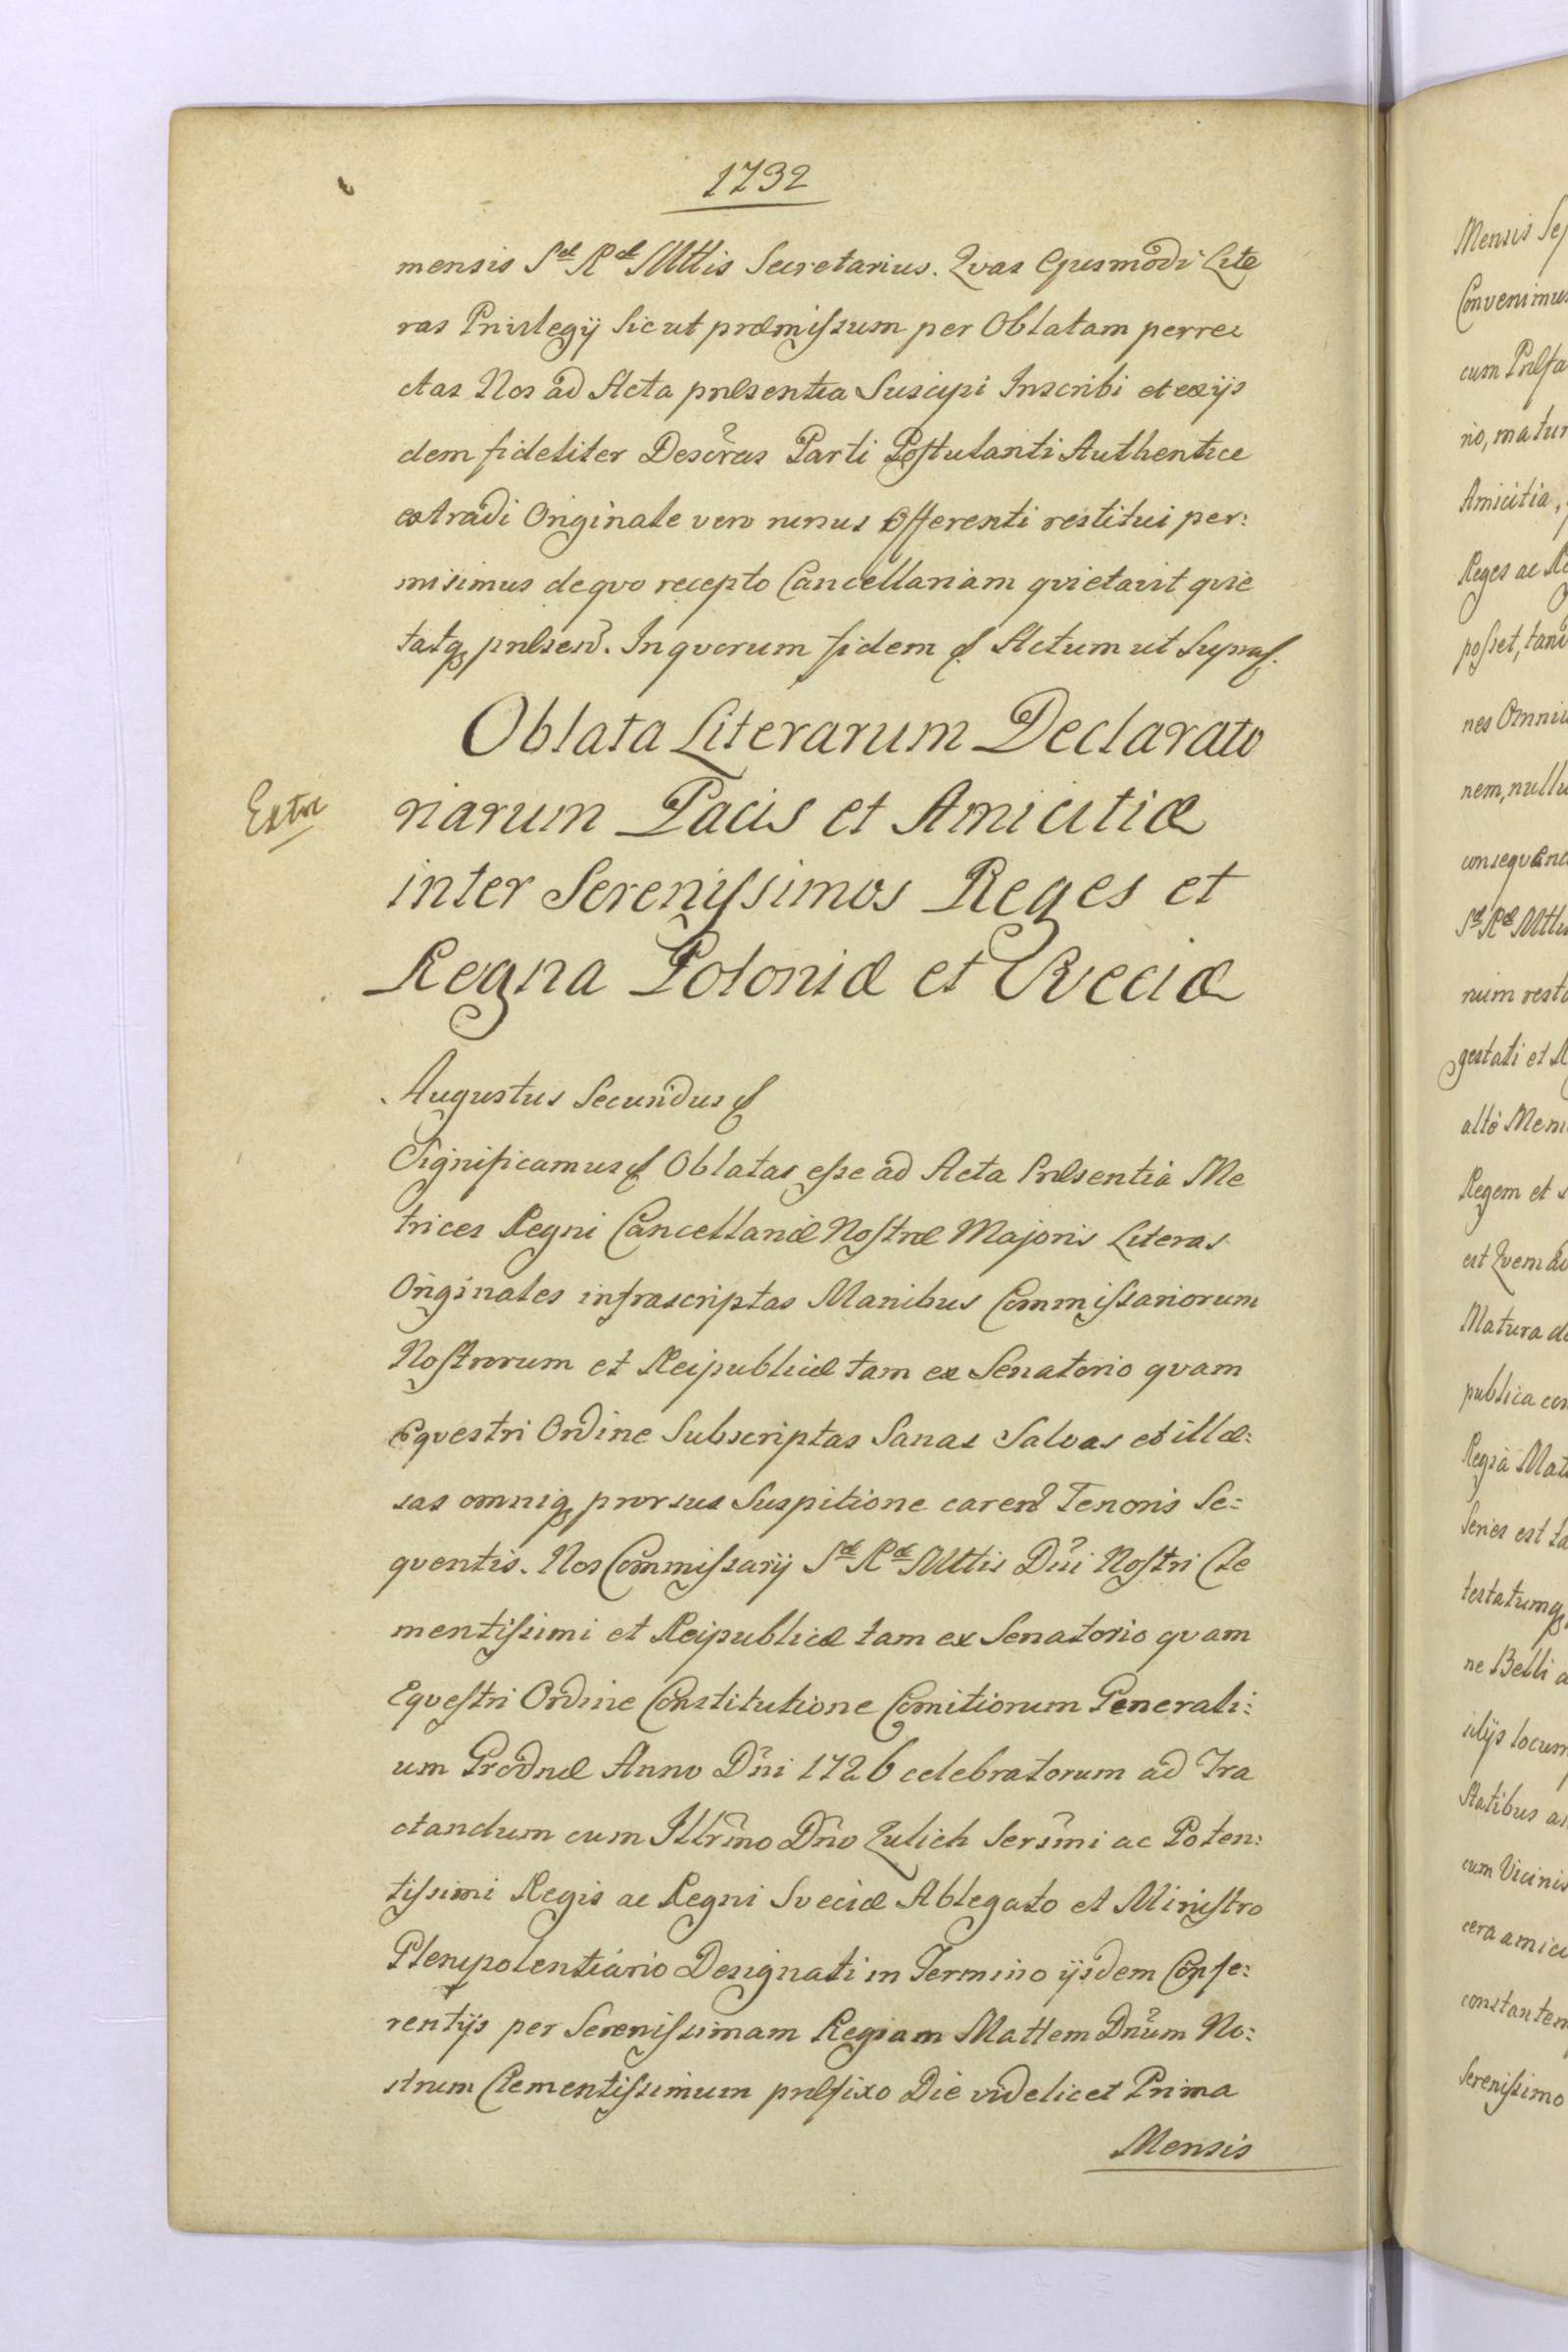 1732
mensis S<sup>æ</sup> R<sup>æ</sup> Mttis Secretarius. Quas Ejusmodi Lite
ras Privilegij Sicut præmissum per Oblatam perre
ctas Nos ad Acta præsentia Suscipi Inscribi et ex ijs
dem fideliter Descrãs Parti Postulanti Authentice
extradi Originale vero rursus Offerenti restitui per:
misimus de quo recepto Cancellariam quietavit quie
tatq præsen. In quorum fidem Actum ut Supra
Oblata Literarum Declarato
Extr
riarum Pacis et Amicitiæ
inter Serenissimos Reges et
Regna Poloniæ et Sveciæ
Augustus Secundus
Significamus Oblatas esse ad Acta Præsentia Me
trices Regni Cancellariæ Nostræ Majoris Literas
Originales infrascriptas Manibus Commissariorum
Nostrorum et Reipublicæ tam ex Senatorio quam
Equestri Ordine Subscriptas Sanas Salvas et illæ:
sas omniq prorsus Suspitione caren Tenoris Se=
quentis. Nos Commissarij S<sup>æ</sup> R<sup>æ</sup> Mttis Dñi Nostri Cle
mentissimi et Reipublicæ tam ex Senatorio quam
Equestri Ordine Constitutione Comitiorum Generali:
um Grodnæ Anno Dñi 1726 celebratorum ad Tra
ctandum cum Illrmo Dño Zulich Sersmi ac Poten:
tissimi Regis ac Regni Sveciæ Ablegato et Ministro
Plenipotentiario Designati in Termino ijsdem Confe:
rentijs per Serenissimam Regiam Mattem Dñum No:
strum Clementissimum præfixo Die videlicet Prima
Mensis
Mensis Se
Convenimus
cum Præfa
rio, matur
Amicitia,
Reges ac Re
posset, tand
nes Omni
nem, nullu
consequend
S<sup>æ</sup> R<sup>æ</sup> Mtti
num resta
gestati et
alto Mem
Regem et
est Quem ad
Matura de
publica con
Regia Mat
Series est ta
testatumq
ne Belli a
icijs locum
Statibus a
cum Vicinis
cera amici
constantem
Serenissimo